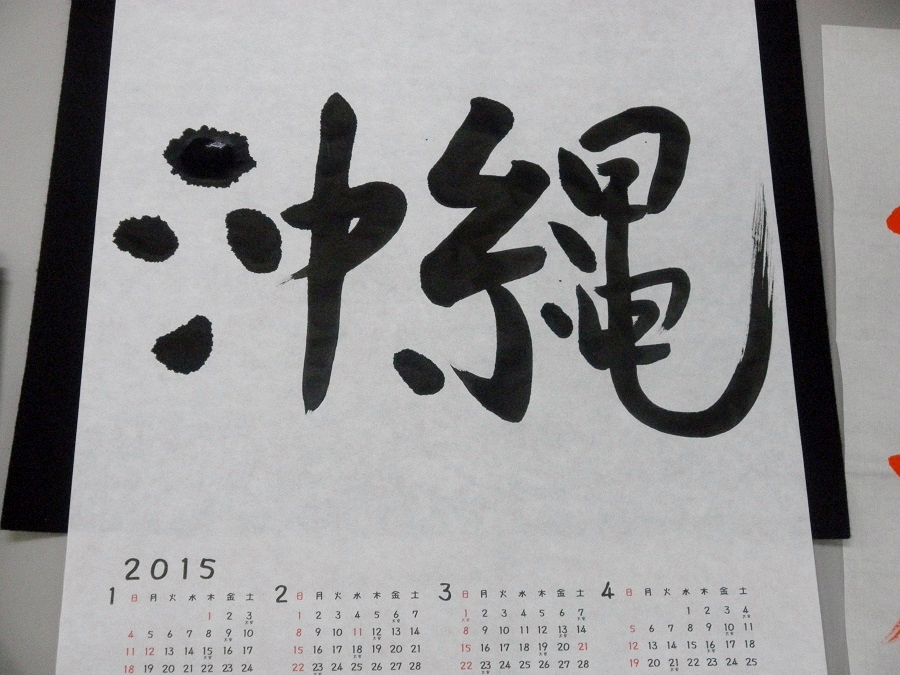 沖縄
2015
1 日 月 火 水 木 金 土 2 日 月 火 水 木 金 土 3 日 月 火 水 木 金 土 4 日 月 火 水 木 金 土
1 2 3 1 2 3 4 5 6 7 1 2 3 4 5 6 7 1 2 3 4
4 5 6 7 8 9 10 8 9 10 11 12 13 14 8 9 10 11 12 13 14 5 6 7 8 9 10 11
11 12 13 14 15 16 17 15 16 17 18 19 20 21 15 16 17 18 19 20 21 12 13 14 15 16 17 18
18 19 20 21 22 23 24 22 23 24 25 26 27 28 22 23 24 25 26 27 28 19 20 21 22 23 24 25